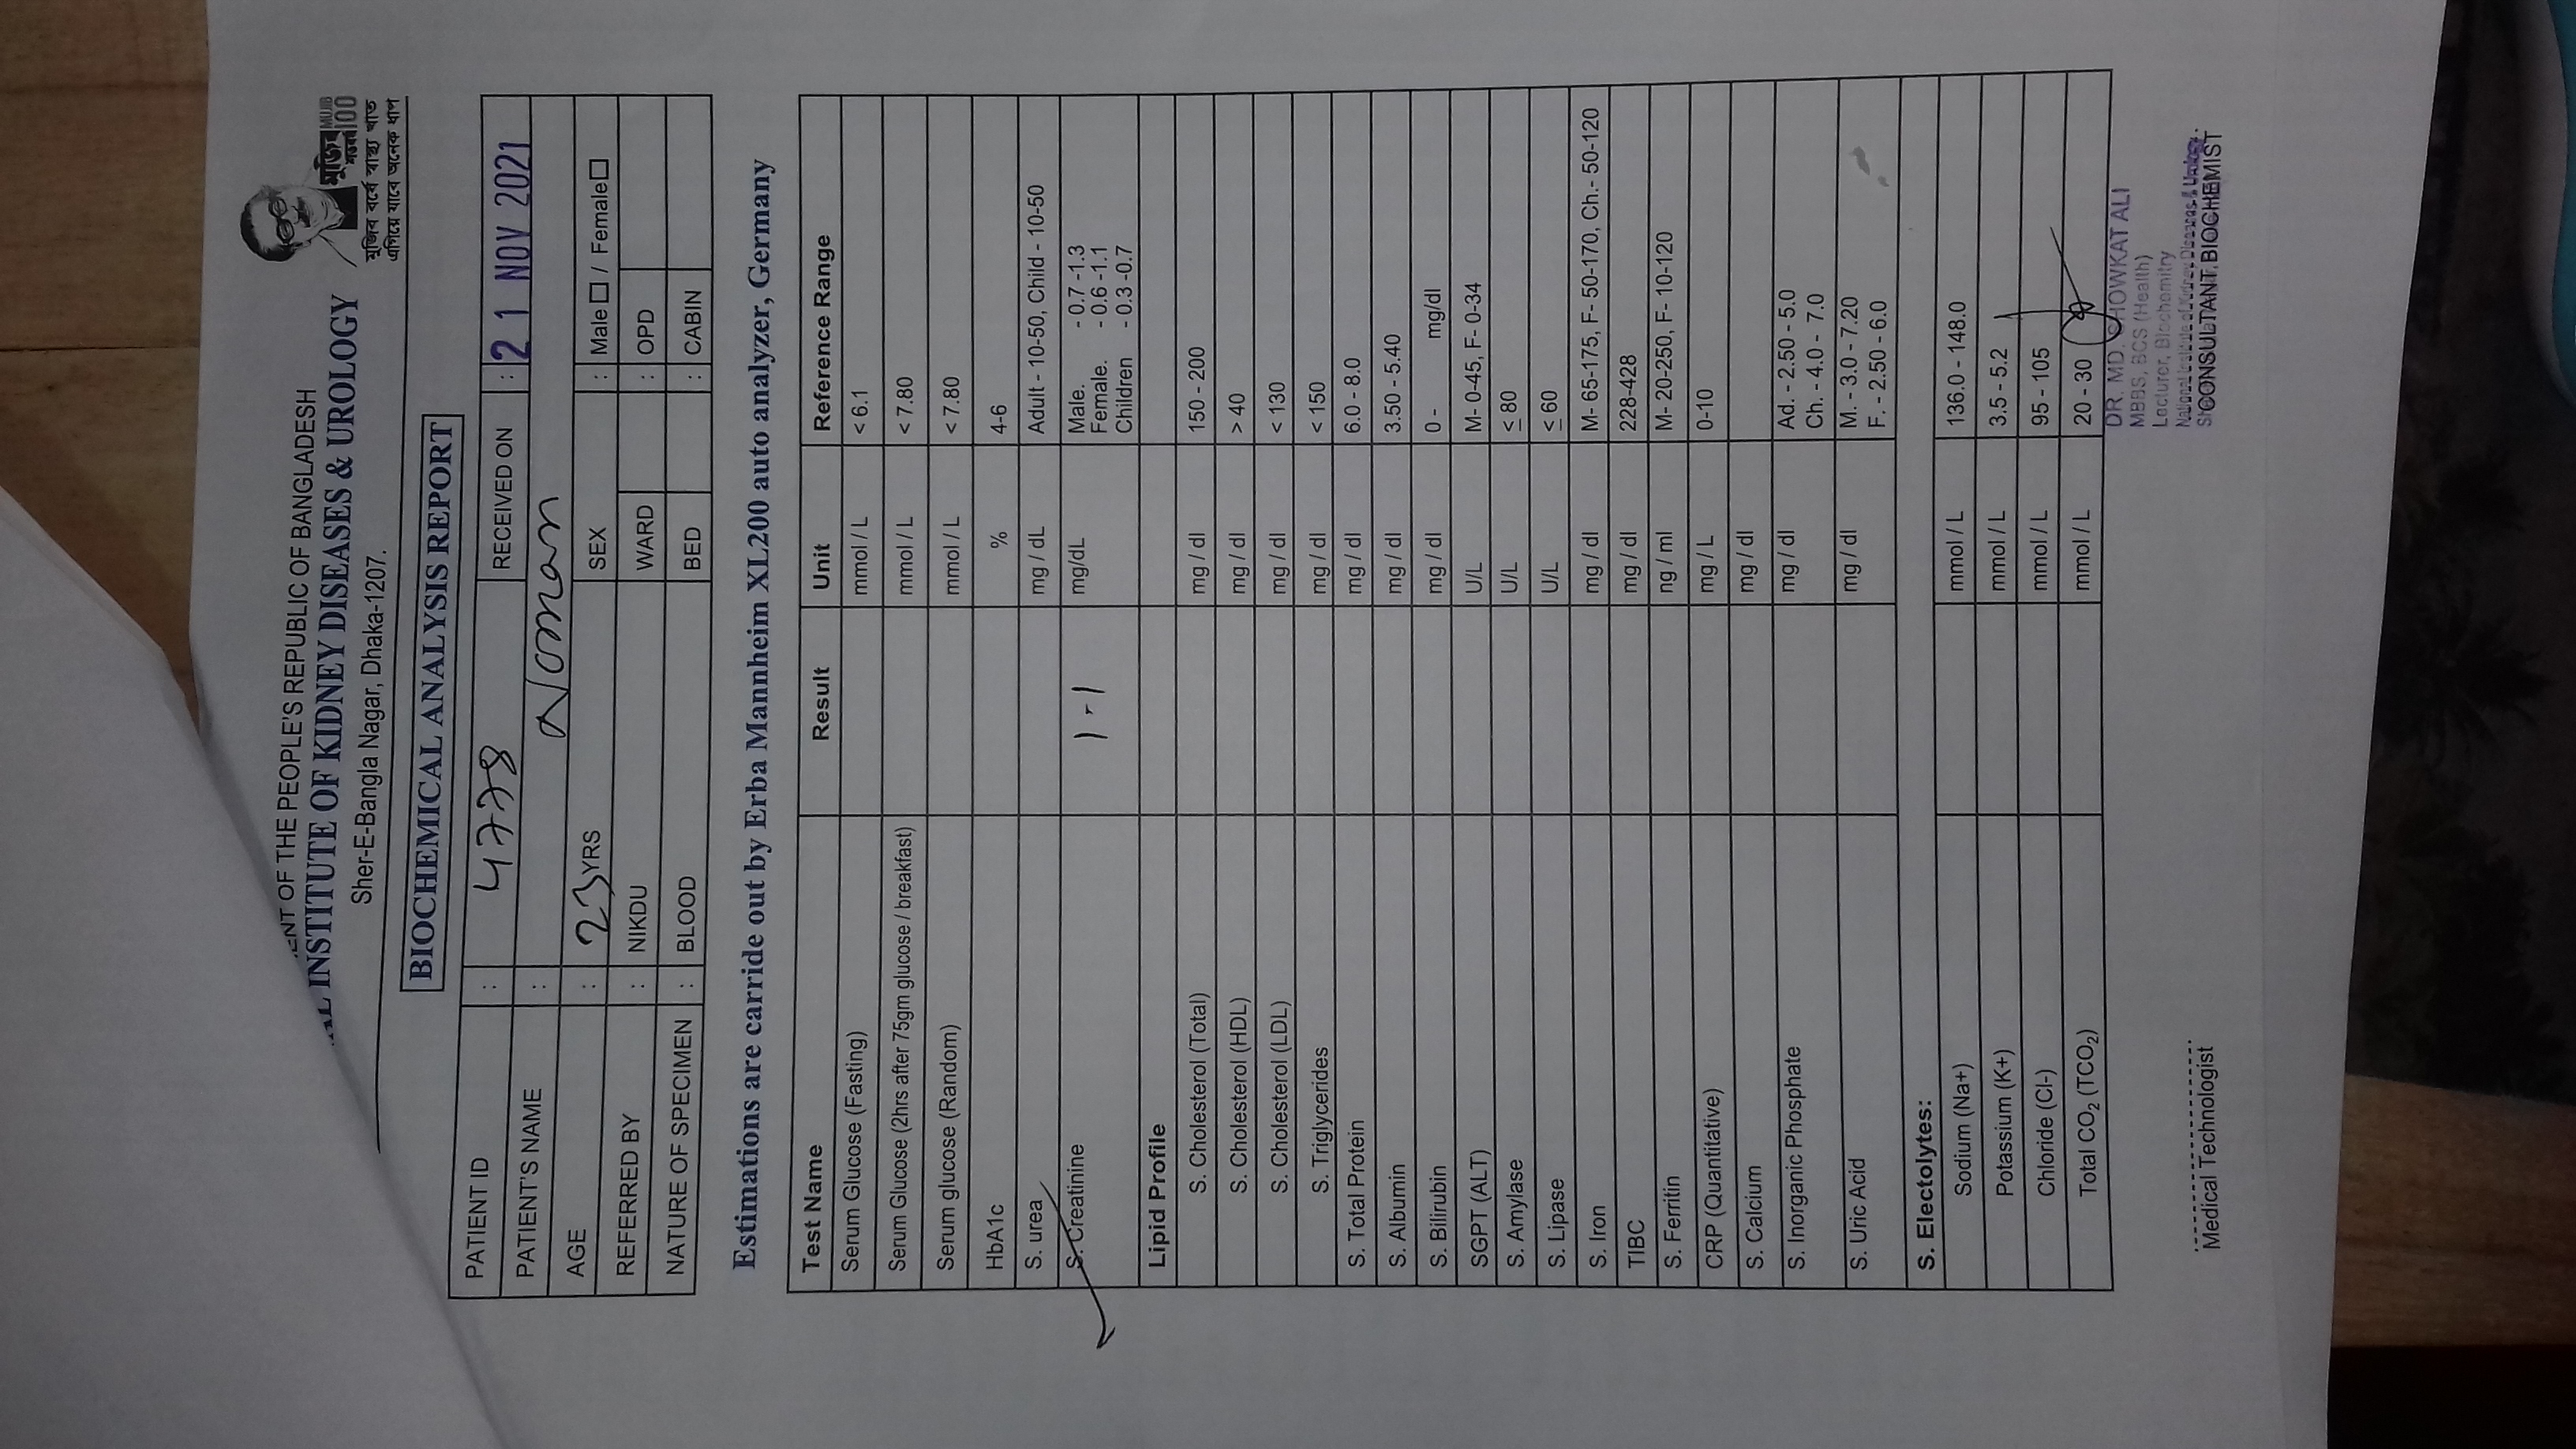 OF THE PEOPLE'S REPUBLIC OF BANGLADESH
INSTITUTE OF KIDNEY DISEASES & UROLOGY
Sher-E-Bangla Nagar, Dhaka-1207.
মুজিব শতবর্ষ MUJIB 100
মুজিব বর্ষে স্বাস্থ্য খাত
এগিয়ে যাবে অনেক ধাপ
BIOCHEMICAL ANALYSIS REPORT
PATIENT ID : 4778 RECEIVED ON : 21 NOV 2021
PATIENT'S NAME : Noman
AGE : 23 YRS SEX : Male / Female
REFERRED BY : NIKDU WARD : OPD
NATURE OF SPECIMEN : BLOOD BED : CABIN
Estimations are carride out by Erba Mannheim XL200 auto analyzer, Germany
Test Name Result Unit Reference Range
Serum Glucose (Fasting) mmol / L < 6.1
Serum Glucose (2hrs after 75gm glucose / breakfast) mmol / L < 7.80
Serum glucose (Random) mmol / L < 7.80
HbA1c % 4-6
S. urea mg / dL Adult - 10-50, Child - 10-50
S. Creatinine 1.1 mg/dL Male. - 0.7 -1.3
Female. - 0.6 -1.1
Children - 0.3 -0.7
Lipid Profile
S. Cholesterol (Total) mg / dl 150 - 200
S. Cholesterol (HDL) mg / dl > 40
S. Cholesterol (LDL) mg / dl < 130
S. Triglycerides mg / dl < 150
S. Total Protein mg / dl 6.0 - 8.0
S. Albumin mg / dl 3.50 - 5.40
S. Bilirubin mg / dl 0 - mg/dl
SGPT (ALT) U/L M- 0-45, F- 0-34
S. Amylase U/L ≤ 80
S. Lipase U/L ≤ 60
S. Iron mg / dl M- 65-175, F- 50-170, Ch.- 50-120
TIBC mg / dl 228-428
S. Ferritin ng / ml M- 20-250, F- 10-120
CRP (Quantitative) mg / L 0-10
S. Calcium mg / dl
S. Inorganic Phosphate mg / dl Ad. - 2.50 - 5.0
Ch. - 4.0 - 7.0
S. Uric Acid mg / dl M. - 3.0 - 7.20
F. - 2.50 - 6.0
S. Electolytes:
Sodium (Na+) mmol / L 136.0 - 148.0
Potassium (K+) mmol / L 3.5 - 5.2
Chloride (Cl-) mmol / L 95 - 105
Total CO₂ (TCO₂) mmol / L 20 - 30
DR. MD. SHOWKAT ALI
MBBS, BCS (Health)
Lecturer, Biochemitry
National Institute of Kidney Diseases & Urology.
Medical Technologist CONSULTANT BIOCHEMIST